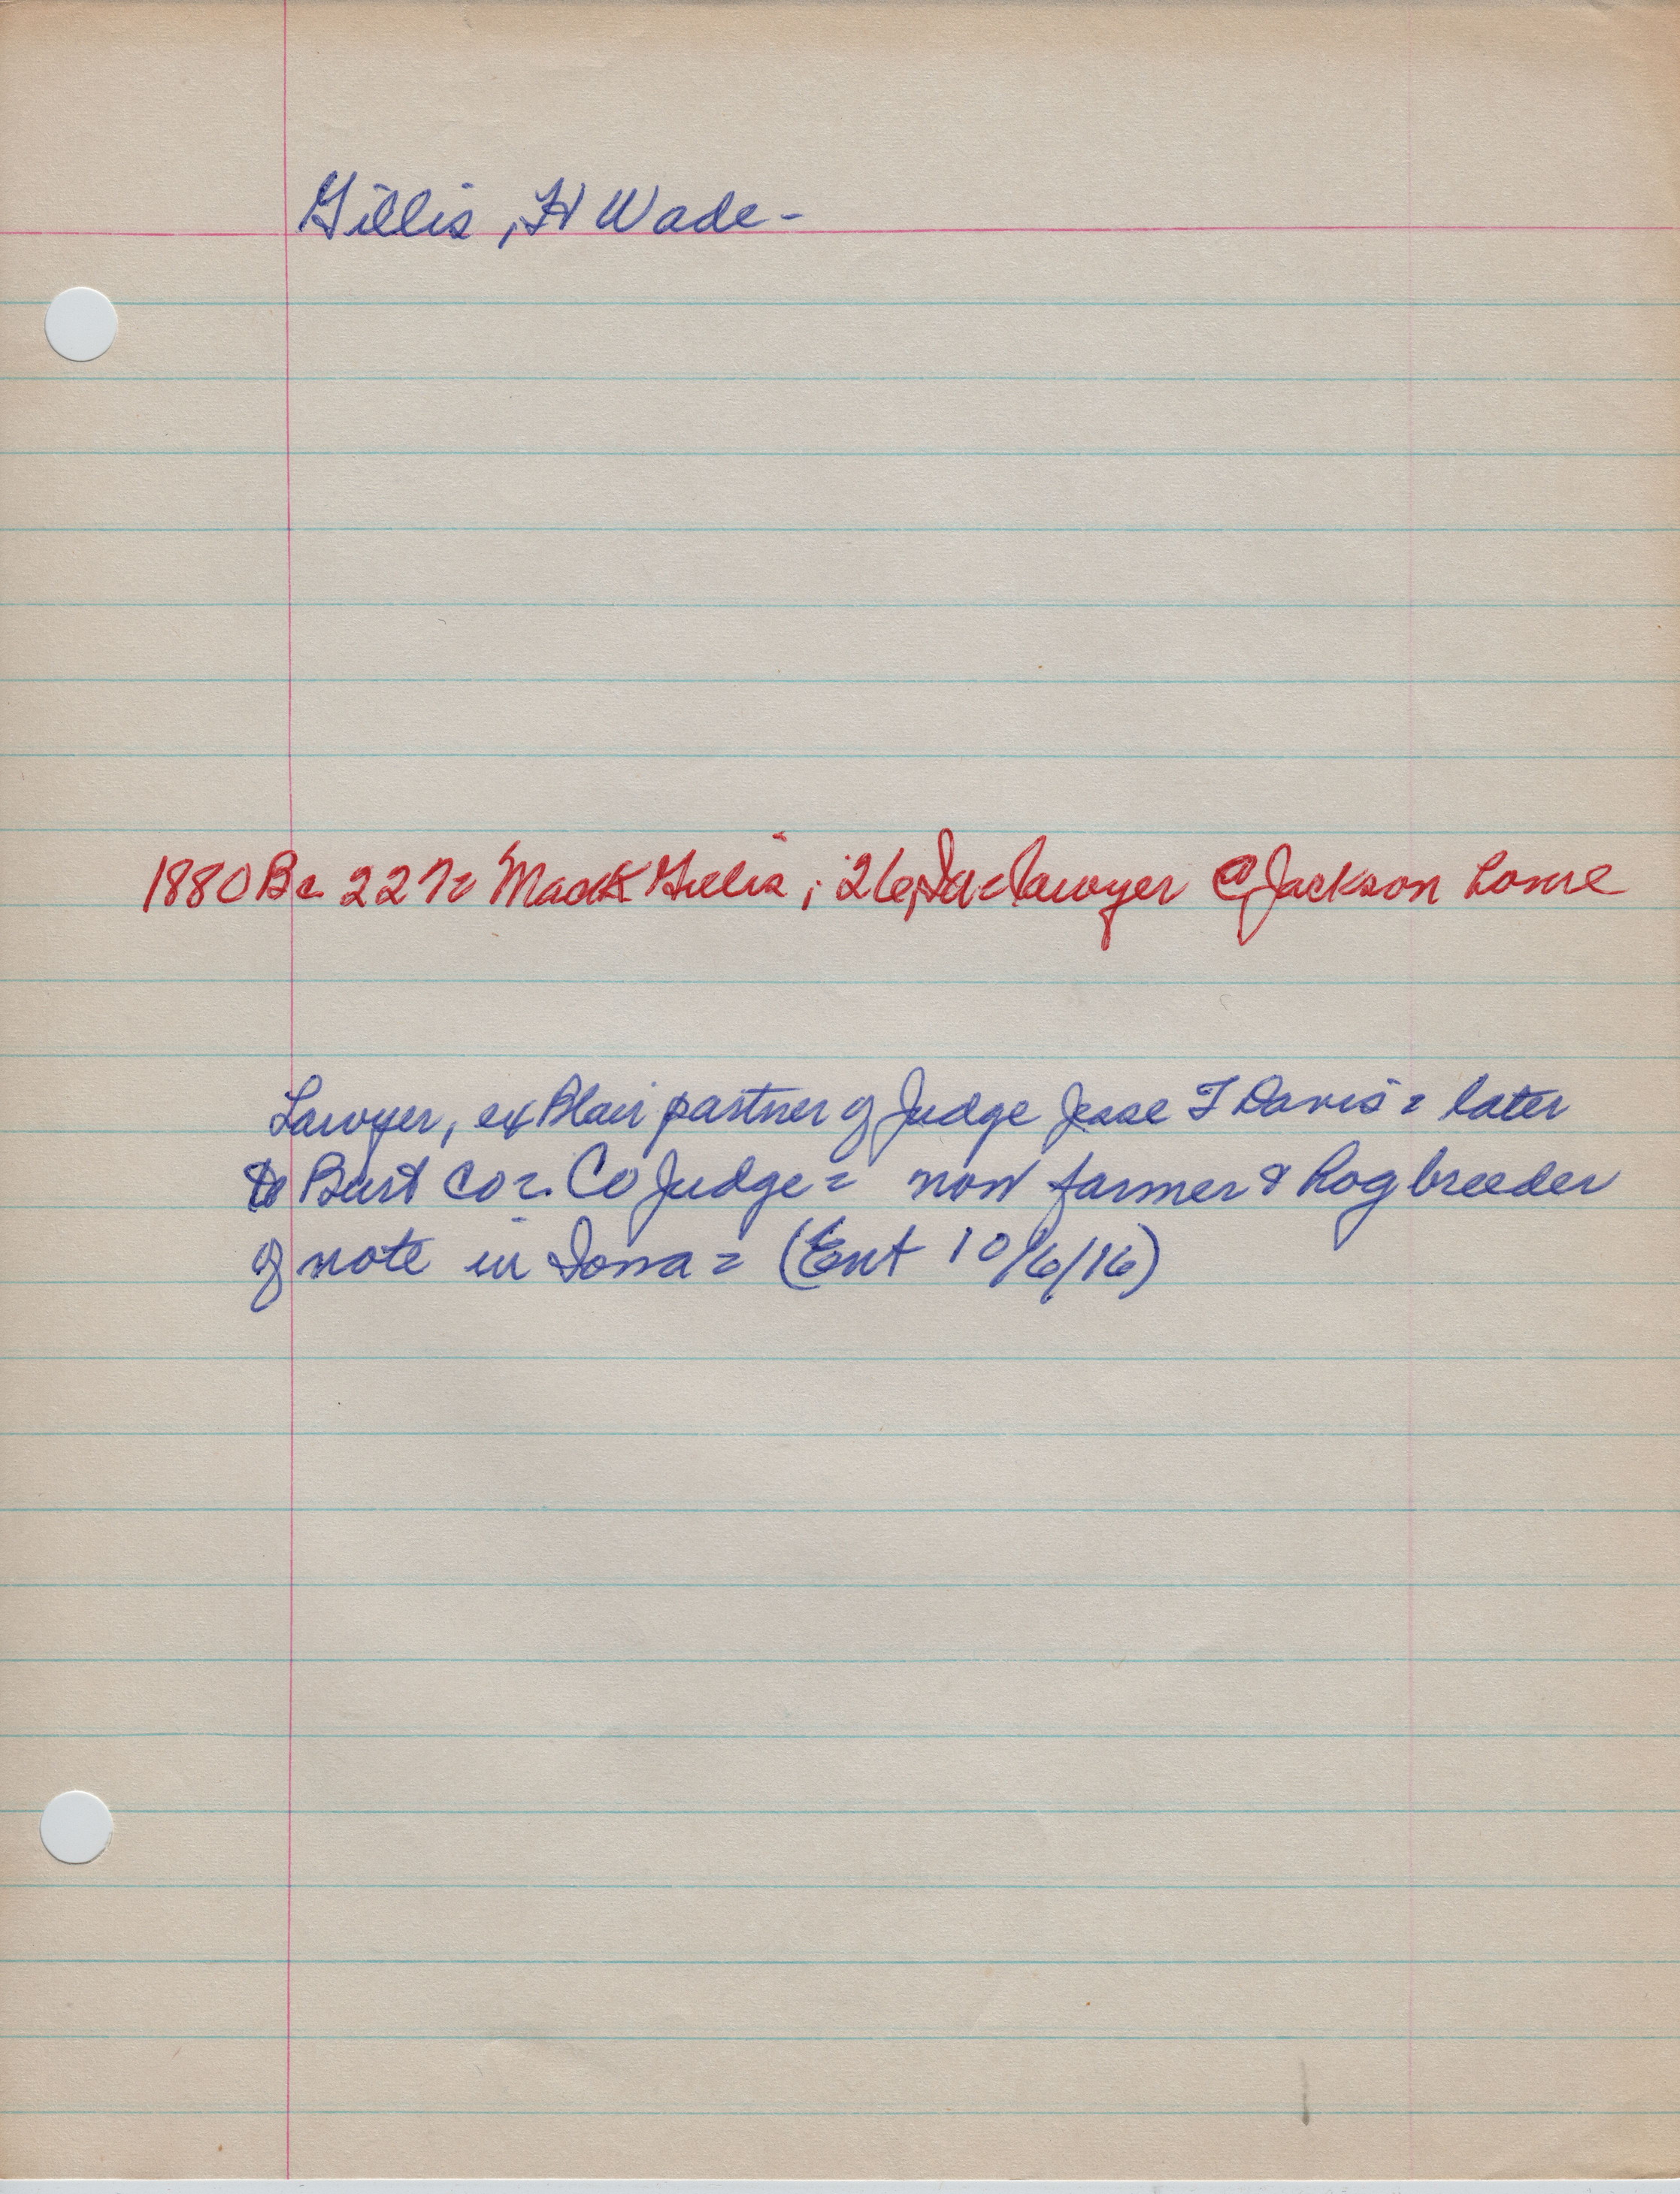 Gillis, H Wade-
1880 B= 227= Mack Gillis, 26, Ia= lawyer @ Jackson home
Lawyer, ex Blair partner of Judge Jesse T Davis = later
to Burt Co =. Co Judge = now farmer & hog breeder
of note in Iowa = (Ent 10/6/16)